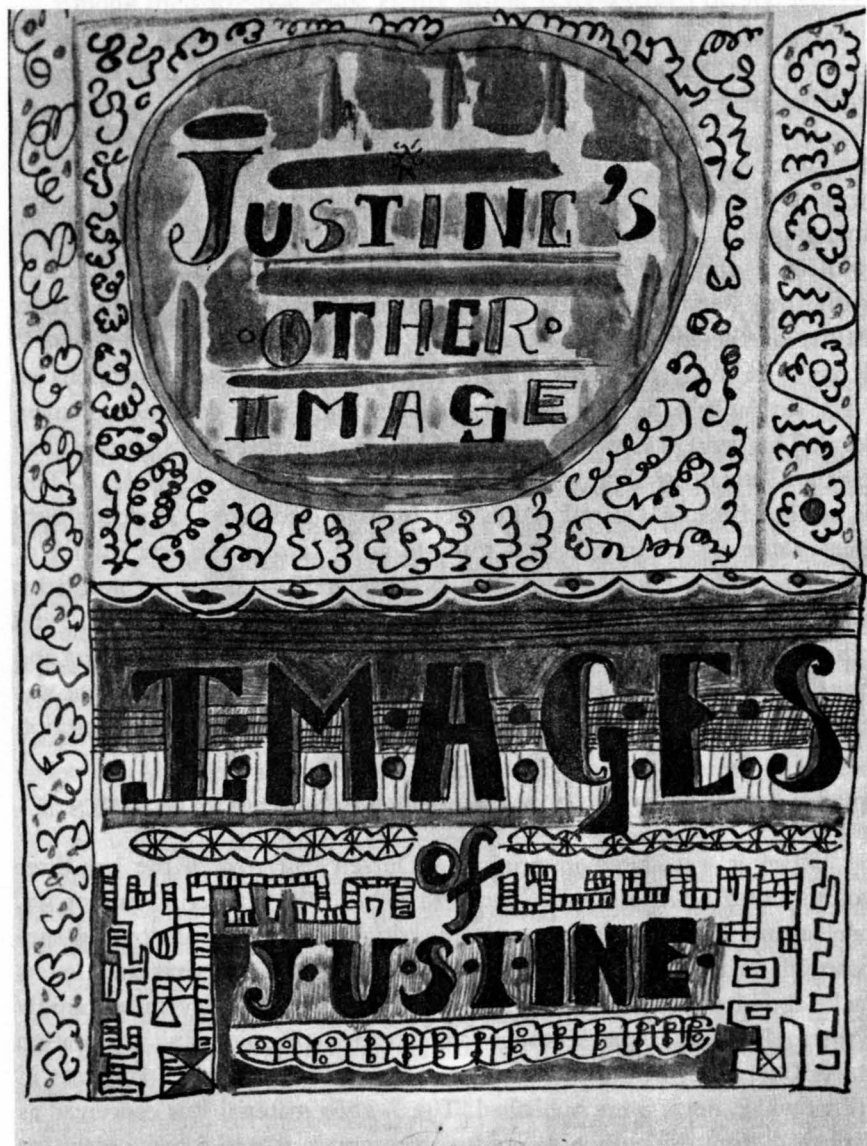 JUSTINE'S
·OTHER·
IMAGE
I·M·A·G·E·S
of
J·U·S·T·INE·